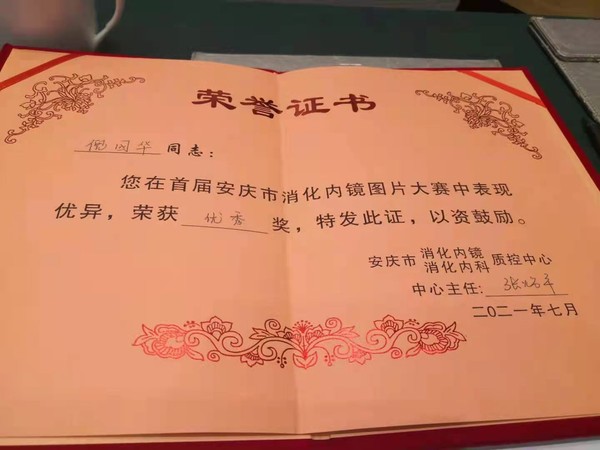 荣誉证书
国华 同志：
您在首届安庆市消化内镜图片大赛中表现
优异，荣获 优秀 奖，特发此证，以资鼓励。
安庆市 消化内镜 消化内科 质控中心
中心主任：张
二〇二一年七月